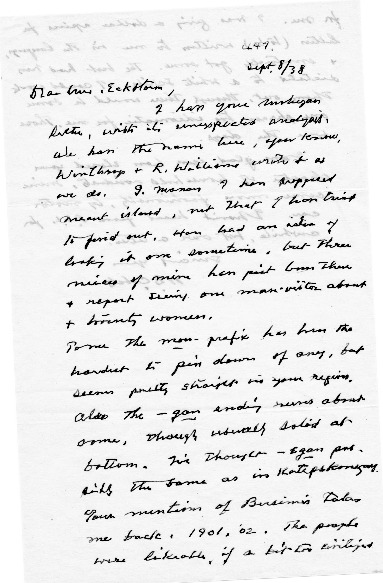 447.
Sept. 8/38
Dear Mrs. Eckstorm,
I have your Michigan
letter, with its unexpected analysis.
We have the name here, you know,
Winthrop & R. Williams wrote it as
we do. I have supposed
meant island, not that I have tried
to find out. Have had an idea of
looking it over sometime, but three
nieces of mine have just been there
& report seeing one man-visitor about
+ twenty women.
To me the man- prefix has been the
hardest to pin down of any, but
seems pretty straight in your region.
Also the -gan ending serves about
some, though usually solid at
bottom. I've thought -egan pos-
sibly the same as in Katepskonegan.
Your mention of Bersimis takes
me back. 1901, '02. The people
were likeable, if a bit too civilized